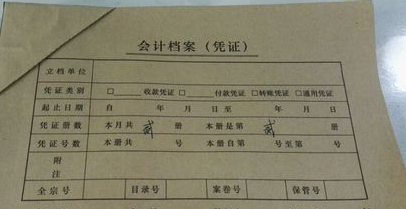 会计档案（凭证）
立档单位
凭证类别 □______收款凭证 □______付款凭证 □转账凭证 □通用凭证
起止日期 自 年 月 日至 年 月 日
凭证册数 本月共 贰 册 本册是第 贰 册
凭证号数 本册共 号 本册自第 号至第 号
附注
全宗号 目录号 案卷号 保管号